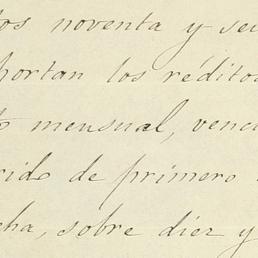 los noventa y sei
portan los réditos
to mensual, venci
rido de primero
cha, sobre diez y